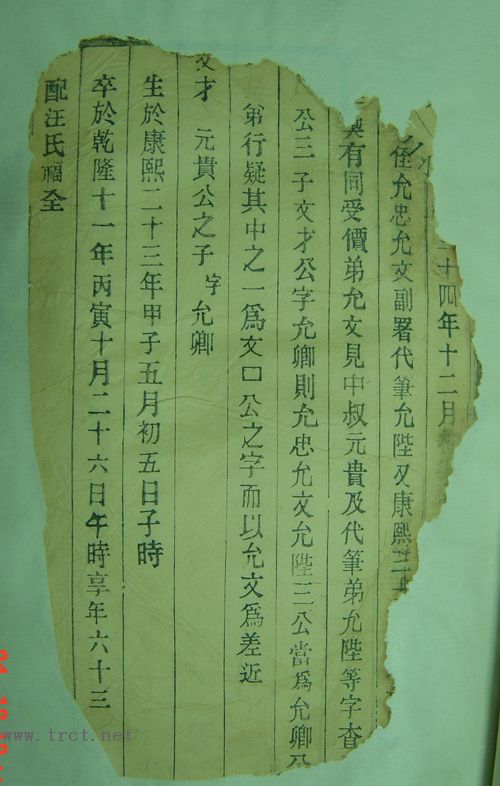 二十四年十二月
侄允忠允文副署代筆允陞又康熙三十
與有同受價弟允文見中叔元貴及代筆弟允陞等字查
公三子文才公字允卿則允忠允文允陞三公當爲允卿公
第行疑其中之一爲文口公之字而以允文爲差近
文才 元貴公之子 字允卿
生於康熙二十三年甲子五月初五日子時
卒於乾隆十一年丙寅十月二十六日午時享年六十三
配汪氏福全
www.trct.net